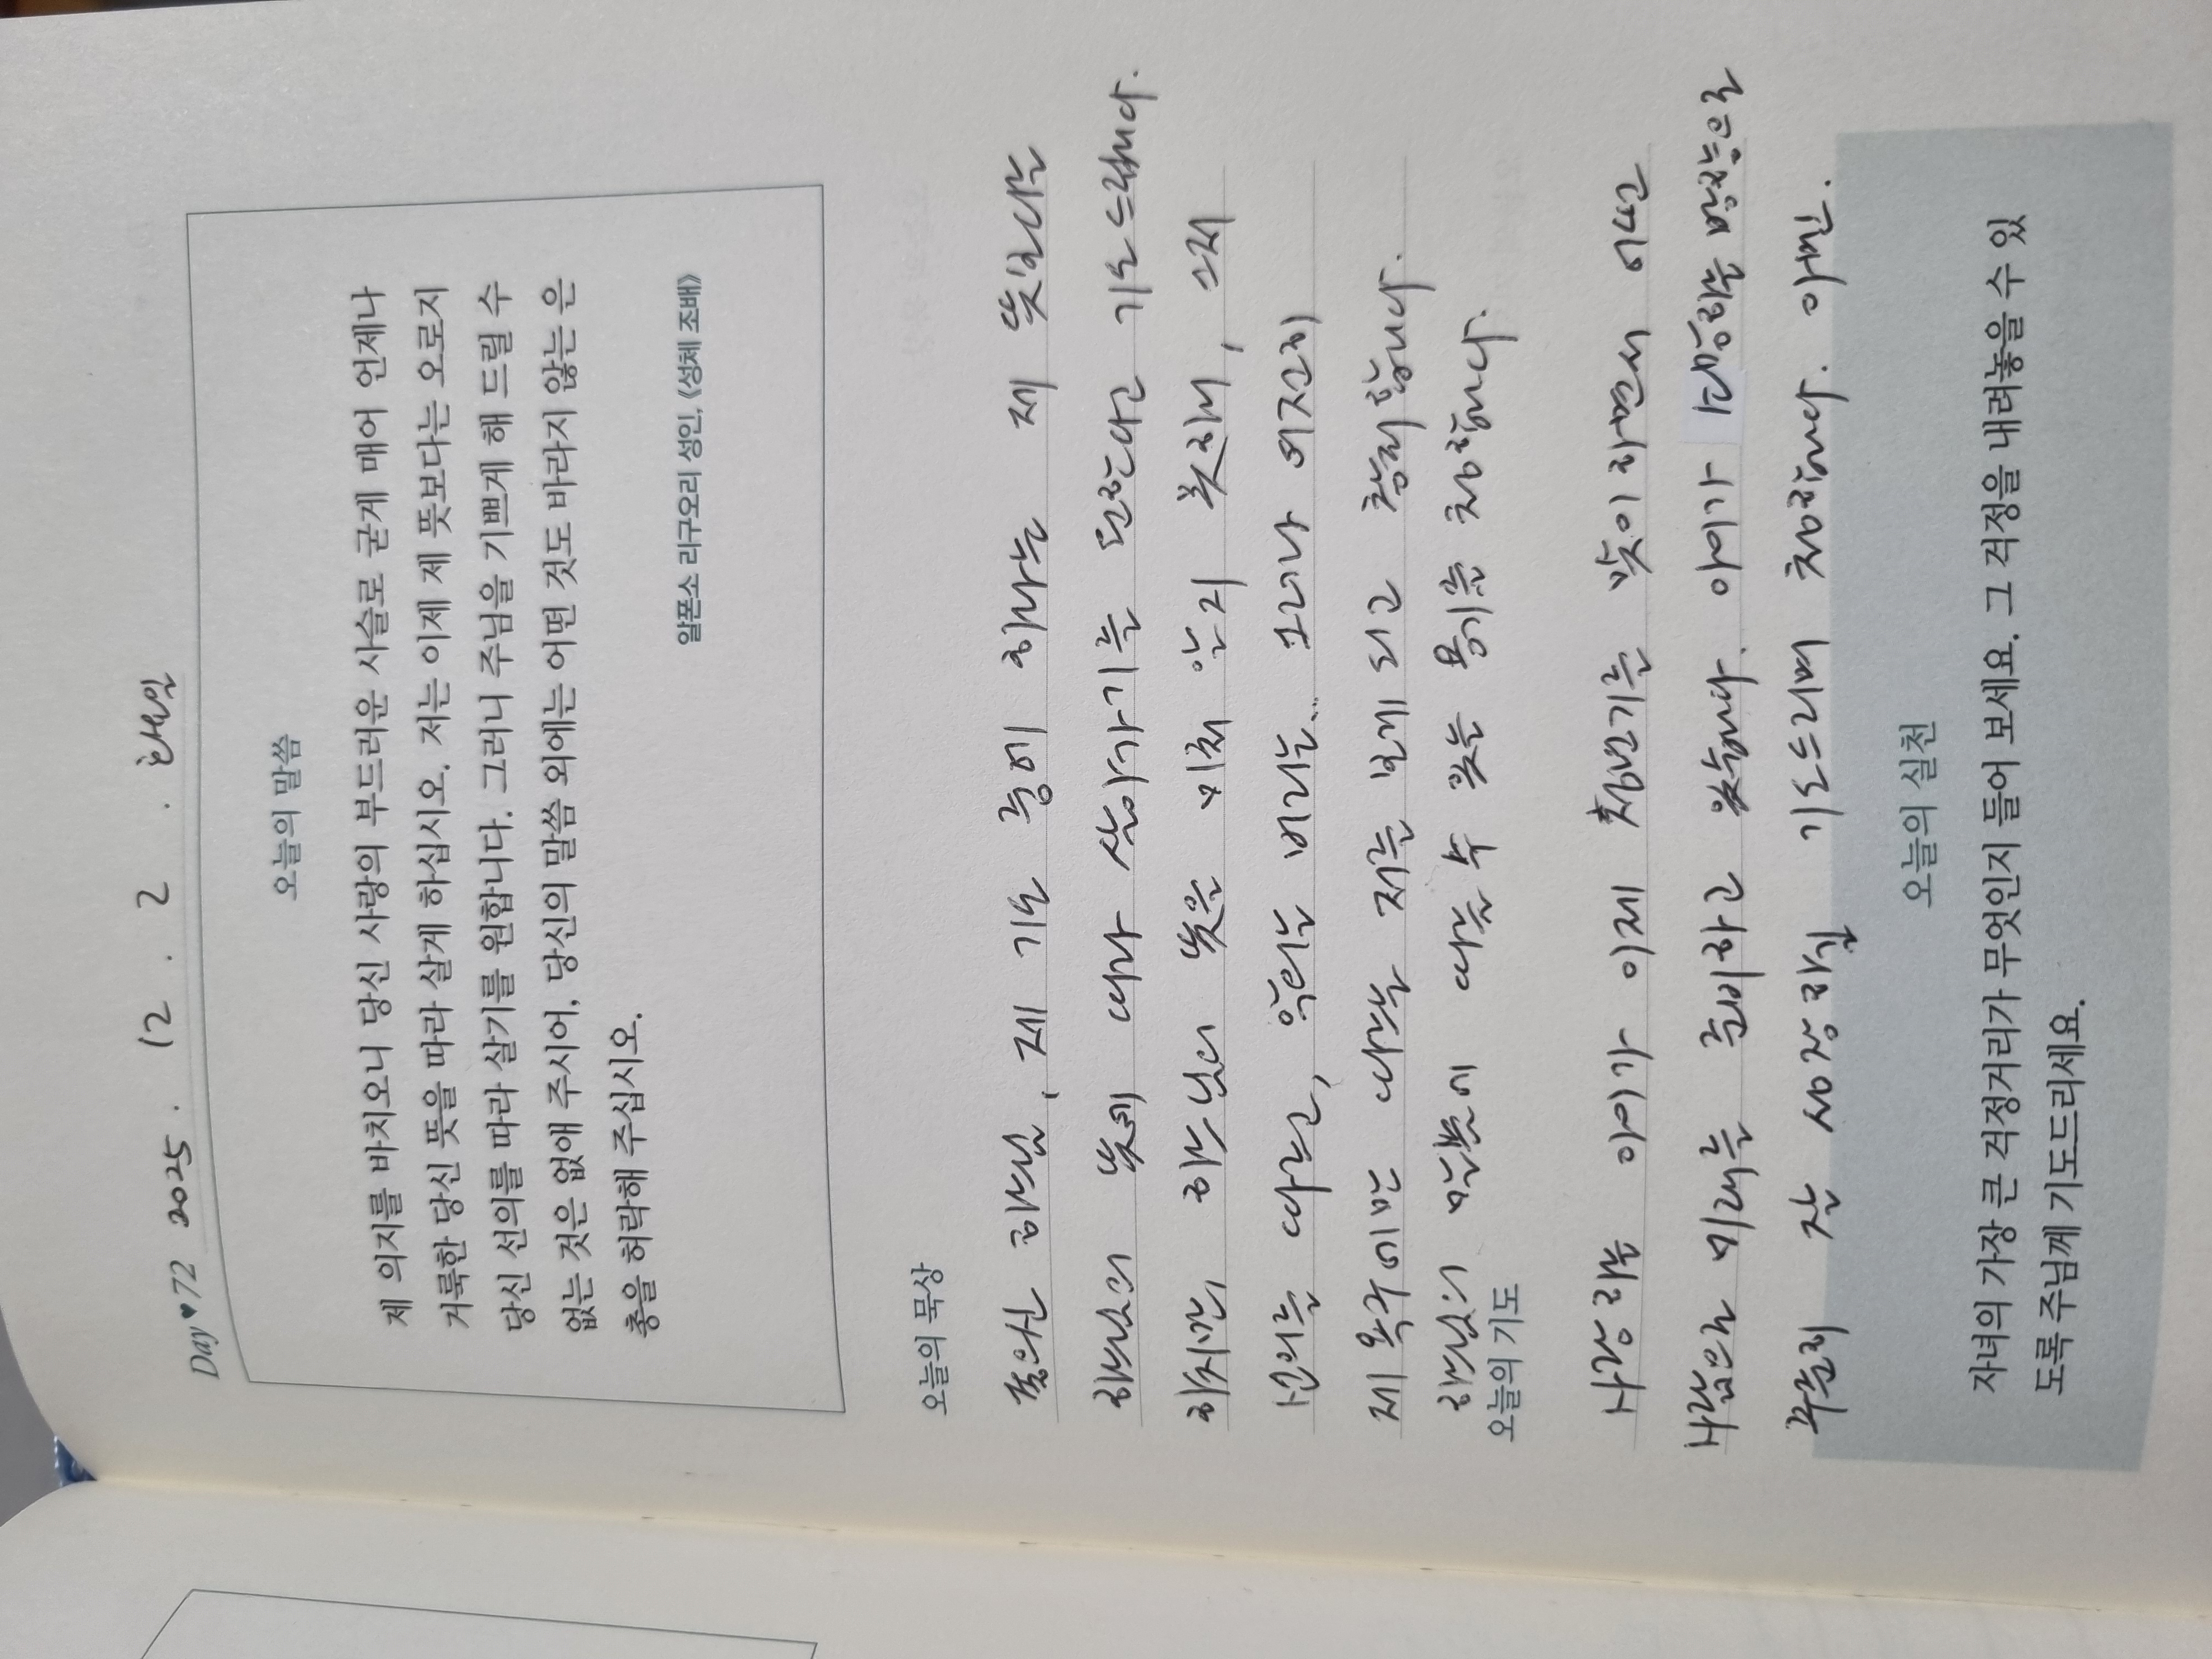 Day ♥ 72 2025. 12. 2. 화요일
오늘의 말씀
제 의지를 바치오니 당신 사랑의 부드러운 사슬로 굳게 매어 언제나
거룩한 당신 뜻을 따라 살게 하십시오. 저는 이제 제 뜻보다는 오로지
당신 선의를 따라 살기를 원합니다. 그러니 주님을 기쁘게 해 드릴 수
없는 것은 없애 주시어, 당신의 말씀 외에는 어떤 것도 바라지 않는 은
총을 허락해 주십시오.
알폰소 리구오리 성인, 《성체 조배》
오늘의 묵상
좋으신 하느님, 제 기도 중에 하나는 제 뜻보다는
하느님의 뜻에 따라 살아가기를 원한다고 기도드립니다.
하지만, 하느님의 뜻은 미처 알지 못하며,
선의를 따르고, 악의는 버리는... 그러나 여전히
제 욕구에만 따르는 저를 보게 되고 합니다.
하느님의 말씀에 따를 수 있는 용기를 청합니다.
오늘의 기도
사랑하는 아이가 이제 청년기를 맞이하면서 어떤
사람으로 미래를 준비하고 있습니다. 아이가 희망하는 방향으로
주님의 잘 성장하길 기도드리며 청합니다. 아멘.
오늘의 실천
자녀의 가장 큰 걱정거리가 무엇인지 들어 보세요. 그 걱정을 내려놓을 수 있
도록 주님께 기도드리세요.